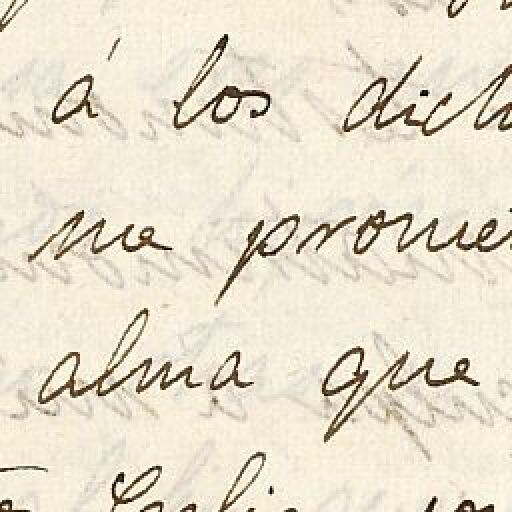 á los dich
me prome
alma que